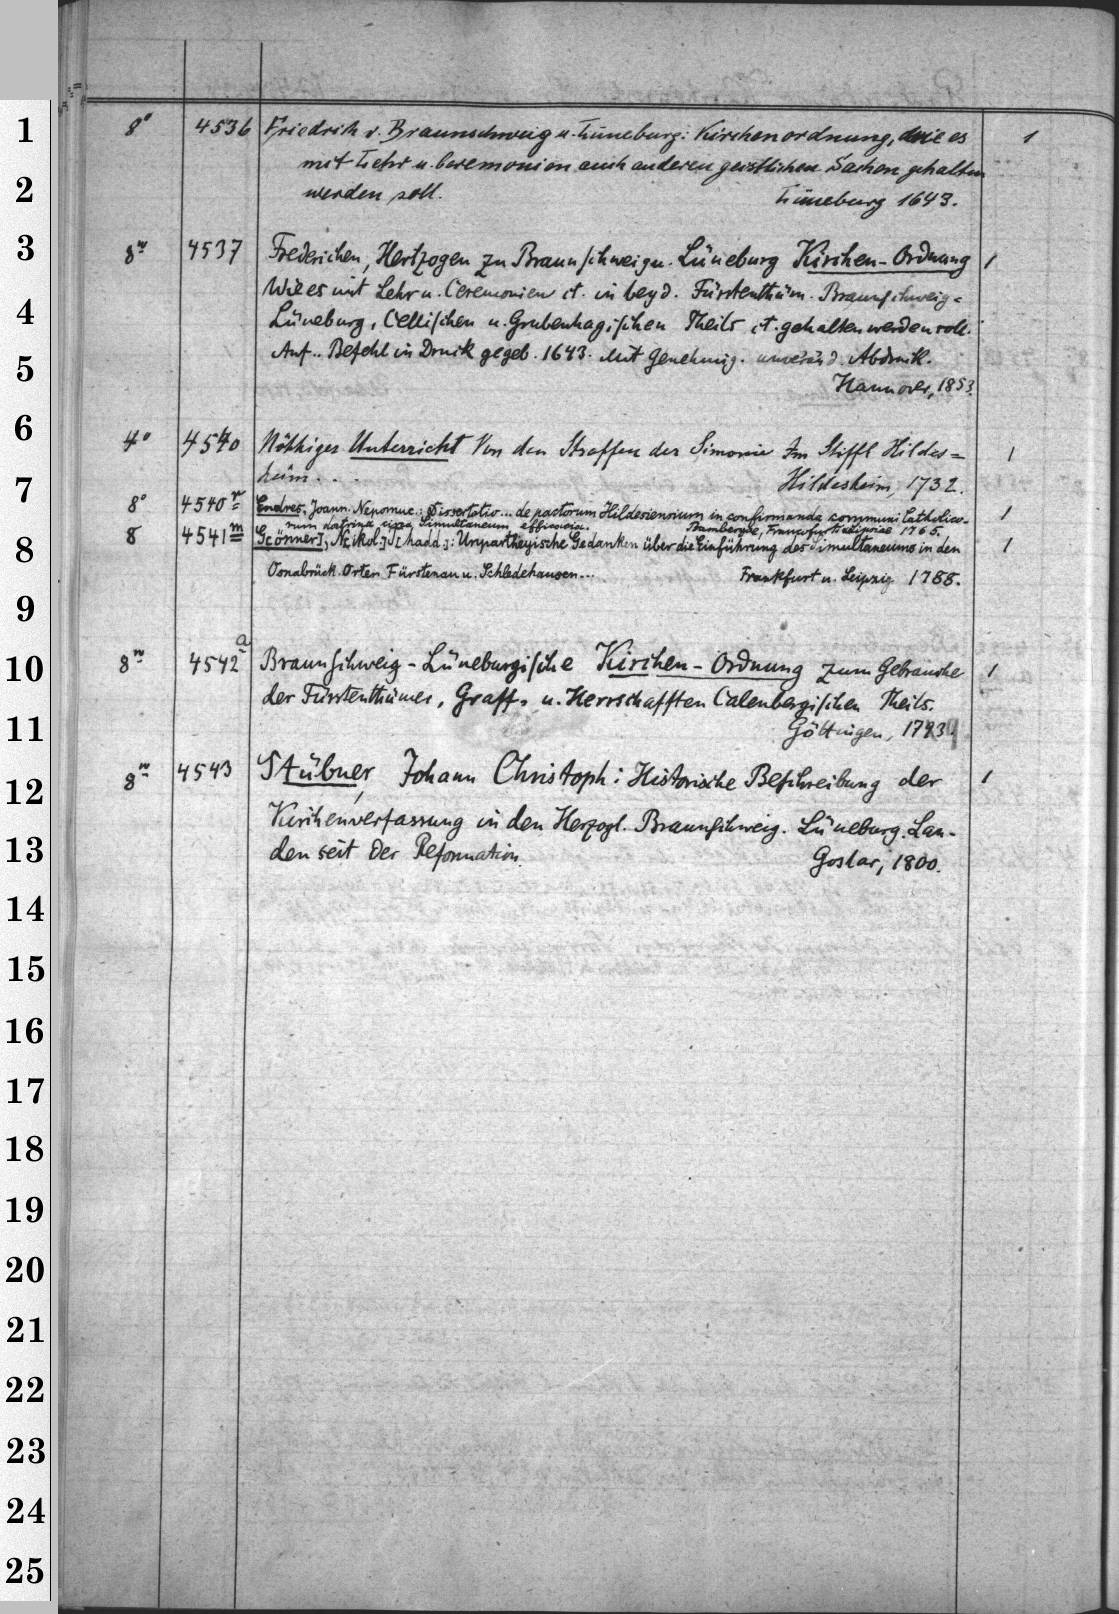 1
2
3
4
5
6
7
8
9
10
11
12
13
14
15
16
17
18
19
20
21
22
23
24
25
8° 4536 Friedrich v. Braunschweig u. Lüneburg: Kirchenordnung, wie es 1
mit Lehr u. Ceremonien auch anderen geistlichen Sachen gehalten
werden soll. Lüneburg 1643.
8° 4537 Frederichen, Hertzogen zu Braunschweig u. Lüneburg Kirchen-Ordnung 1
Wie es mit Lehr u. Ceremonien et. in beyd. Fürstenthüm. Braunschweig=
Lüneburg, Cellischen u. Grubenhagischen Theils et. gehalten werden soll.
Auf.. Befehl in Druck gegeb. 1643. Mit Genehmig. Abdruck.
Hannover, 1853.
4° 4540 Nöthiger Unterricht Von den Straffen der Simonie Im Stifft Hildes= 1
heim. . . Hildesheim, 1732.
8° 4540 Endres, Joann. Nepomuc.: Dissertatio... de pactorum Hildesiensium in confirmanda communi Catholico- 1
rum doctrina circa Simultaneum efficacia. Bambergae, Francofurti Lipsiae 1765.
8 4541m G[önner], N[ikol.] T[hadd.]: Unpartheyische Gedanken über die Einführung des Simultaneums in den 1
Osnabrück. Orten Fürstenau u. Schledehausen... Frankfurt u. Leipzig 1788.
8° 4542a Braunschweig-Lüneburgische Kirchen-Ordnung zum Gebrauche 1
der Fürstenthümer, Graff- u. Herrschafften Calenbergischen Theils.
Göttingen,
8° 4543 Stübner, Johann Christoph: Historische Beschreibung der 1
Kirchenverfassung in den Herzogl. Braunschweig. Lüneburg. Lan-
den seit der Reformation. Goslar, 1800.